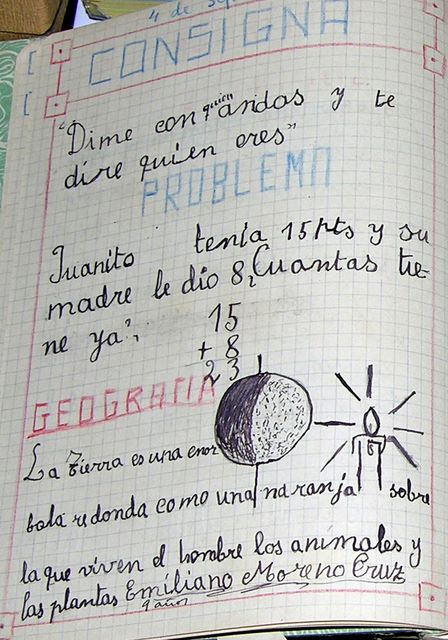 4 de
CONSIGNA
"Dime con quien andas y te
dire quien eres"
PROBLEMA
Juanito tenia 15 pts y su
madre le dio 8, ¿Cuantas tie-
ne ya?
15
+ 8
23
GEOGRAFIA
La Tierra es una enor
bola redonda como una naranja sobre
la que viven el hombre los animales y
las plantas Emiliano Moreno Cruz
9 años